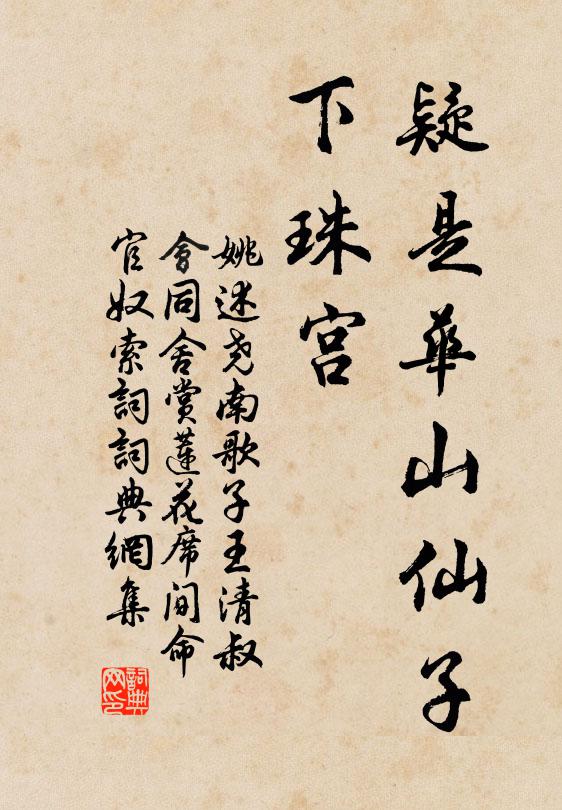 疑是華山仙子
下珠宫
姚述堯南歌子王清叔
會同舍賞蓮花席間命
官奴索詞詞典網集
詞典
网印